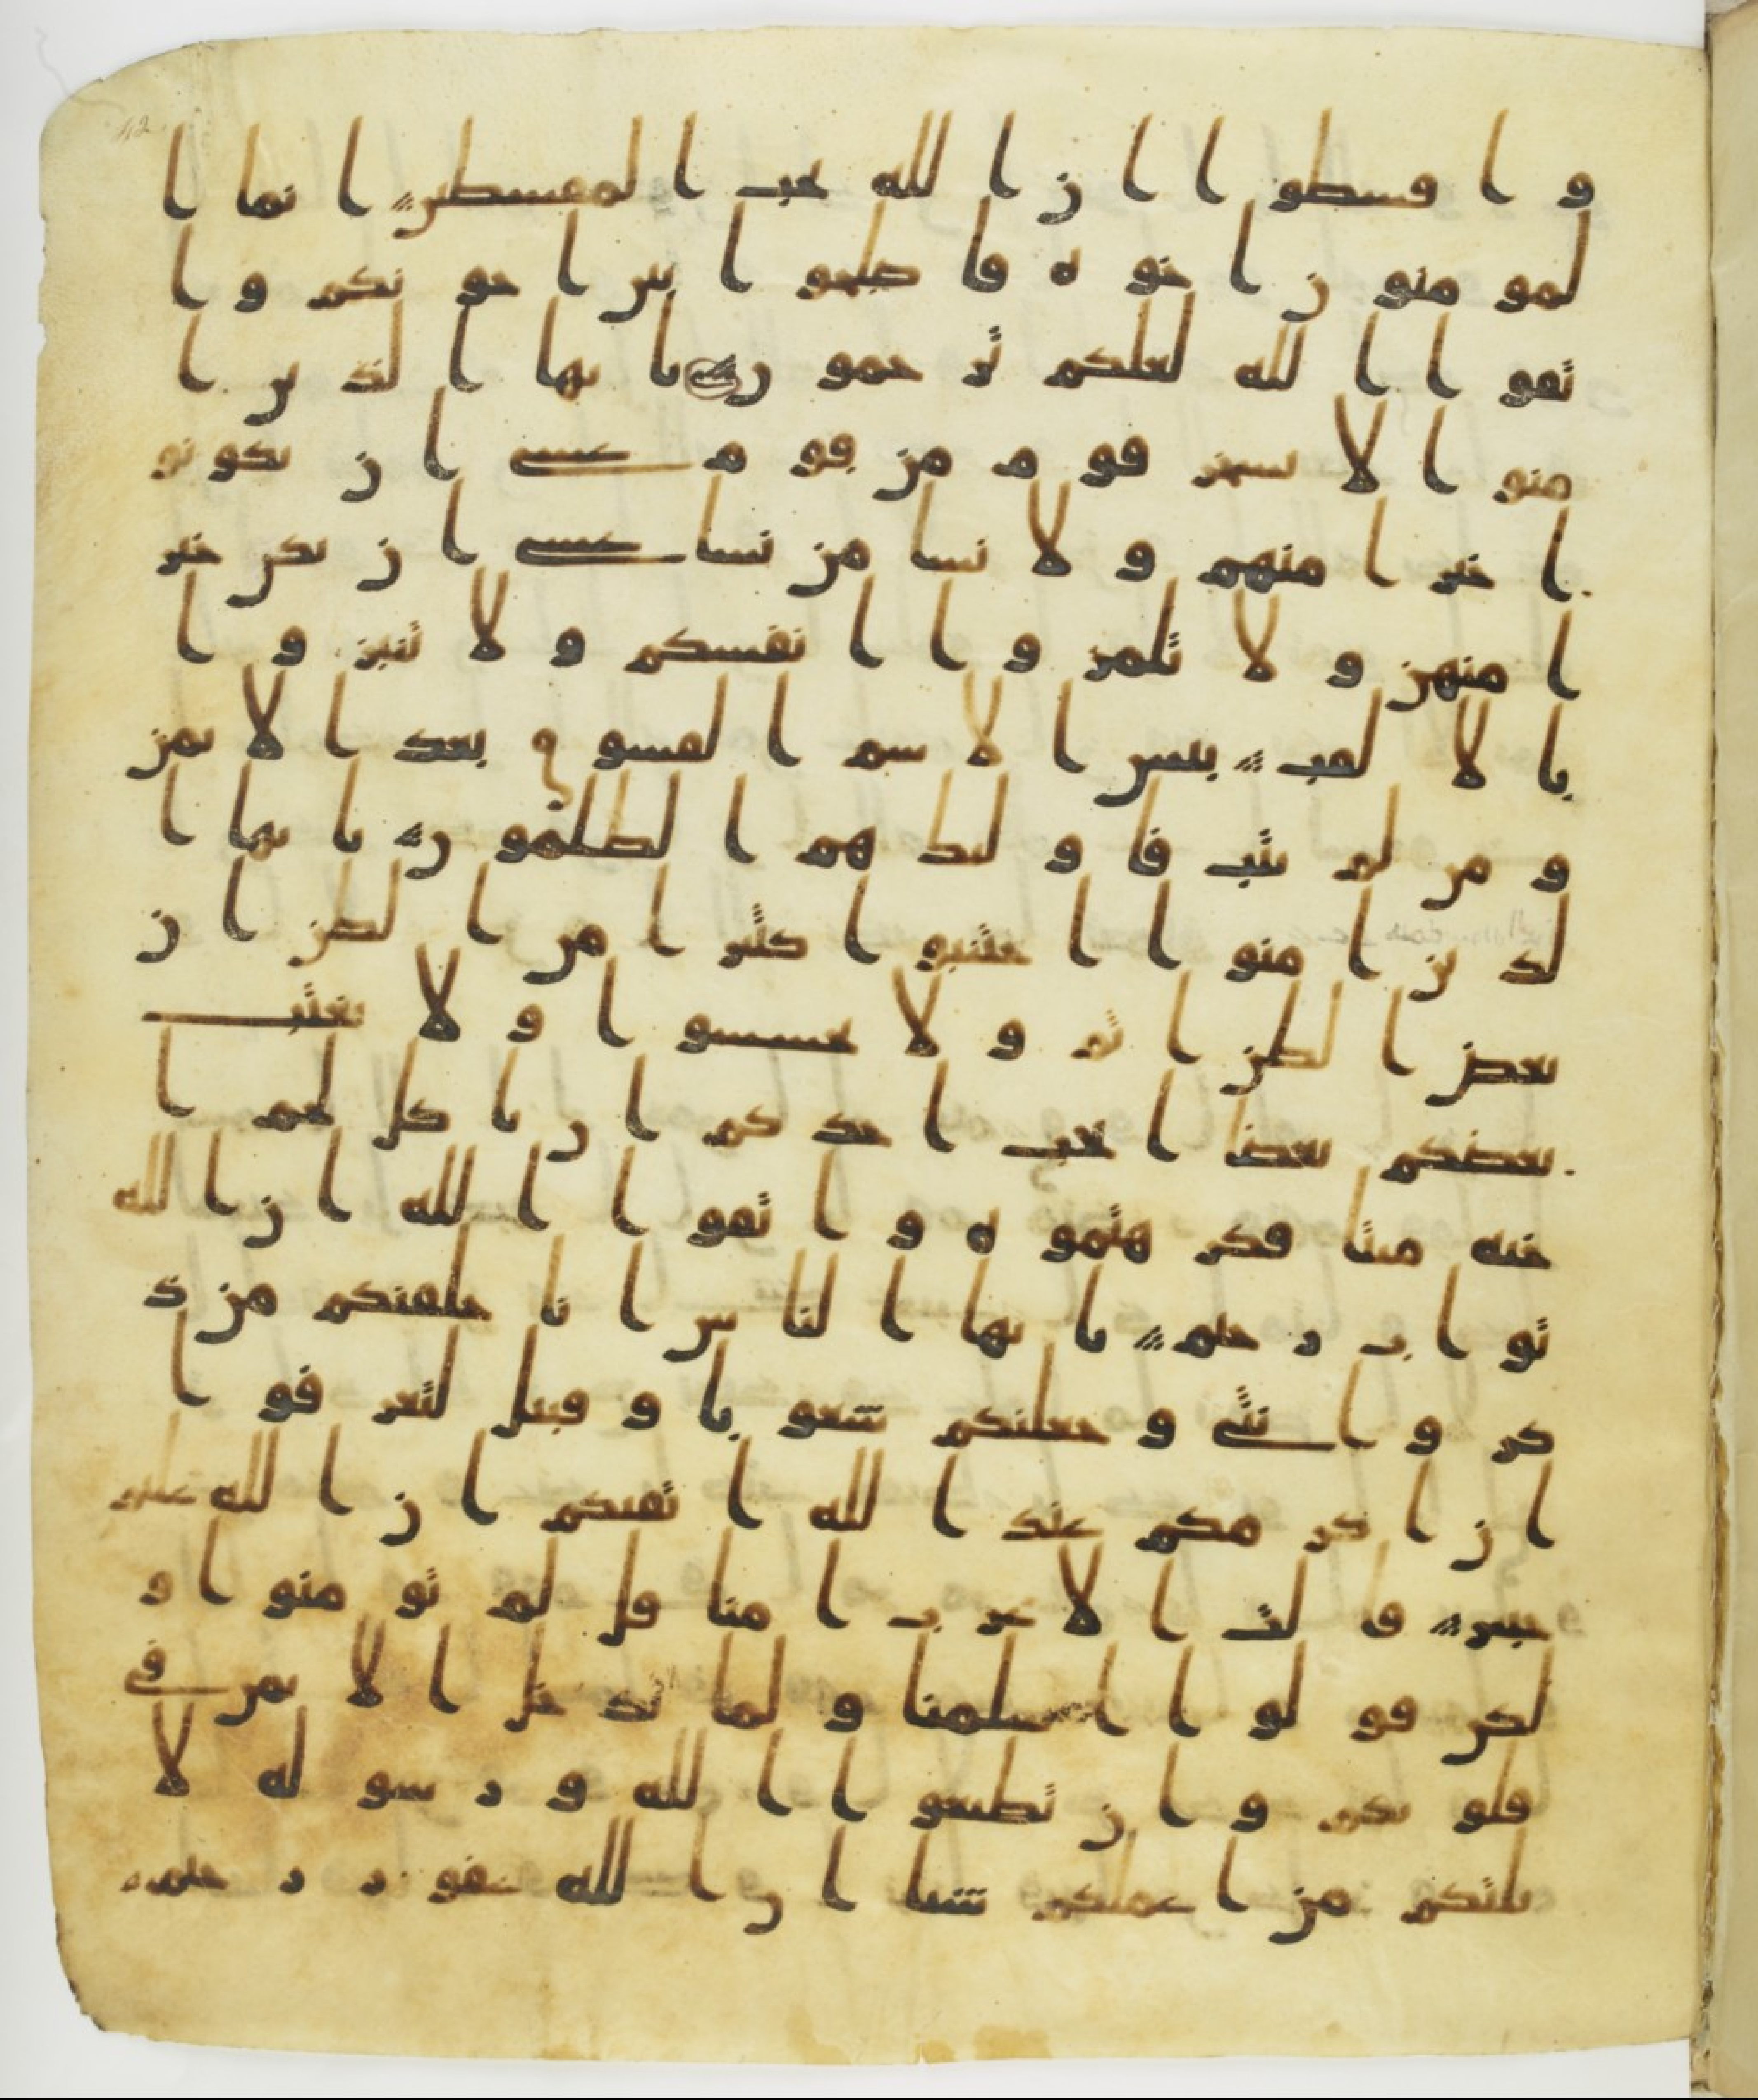 واقسطوا ان الله يحب المقسطين انما ا
لمومنون اخوه فاصلحوا بين اخويكم وا
تقوا الله لعلكم ترحمون يايها الذين ا
منوا لا يسخر قوم من قوم عسى ان يكونو
ا خيرا منهم ولا نسا من نسا عسى ان يكن خير
ا منهن ولا تلمزوا انفسكم ولا تنبزوا
بالالقب بيس الاسم الفسوق بعد الايمن
ومن لم يتب فاوليك هم الظلمون يايها ا
لذين امنوا اجتنبوا كثيرا من الظن ان
بعض الظن اثم ولا تجسسوا ولا يغتب
بعضكم بعضا ايحب احدكم ان ياكل لحم ا
خيه ميتا فكرهتموه واتقوا الله ان الله
تواب رحيم يايها الناس انا خلقنكم من ذ
كر وانثى وجعلنكم شعوبا وقبيل لتعرفوا
ان اكرمكم عند الله اتقيكم ان الله عليم
خبير قالت الاعراب امنا قل لم تومنوا و
لكن قولوا اسلمنا ولما يدخل الايمن في
قلوبكم وان تطيعوا الله ورسوله لا
يلتكم من اعملكم شيا ان الله غفور رحيم